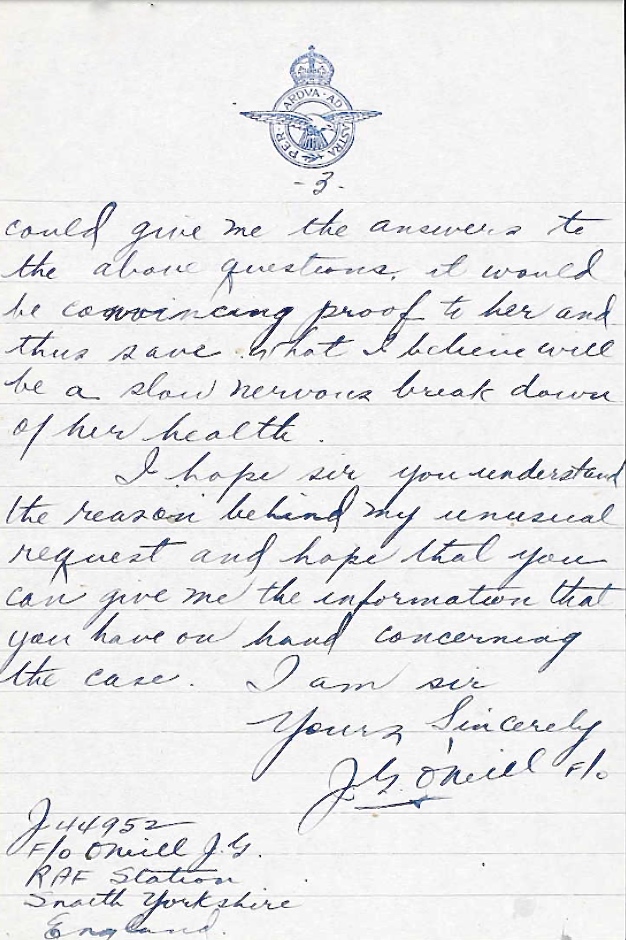 PER · ARDVA · AD ASTRA
- 3 -
could give me the answers to
the above questions, it would
be convincing proof to her and
thus save what I believe will
be a slow nervous break down
of her health.
I hope sir you understand
the reason behind my unusual
request and hope that you
can give me the information that
you have on hand concerning
the case. I am sir
Yours Sincerely
J.G. O'Neill F/O
J44952
F/o ONeill J.G.
RAF Station
Snaith Yorkshire
England.